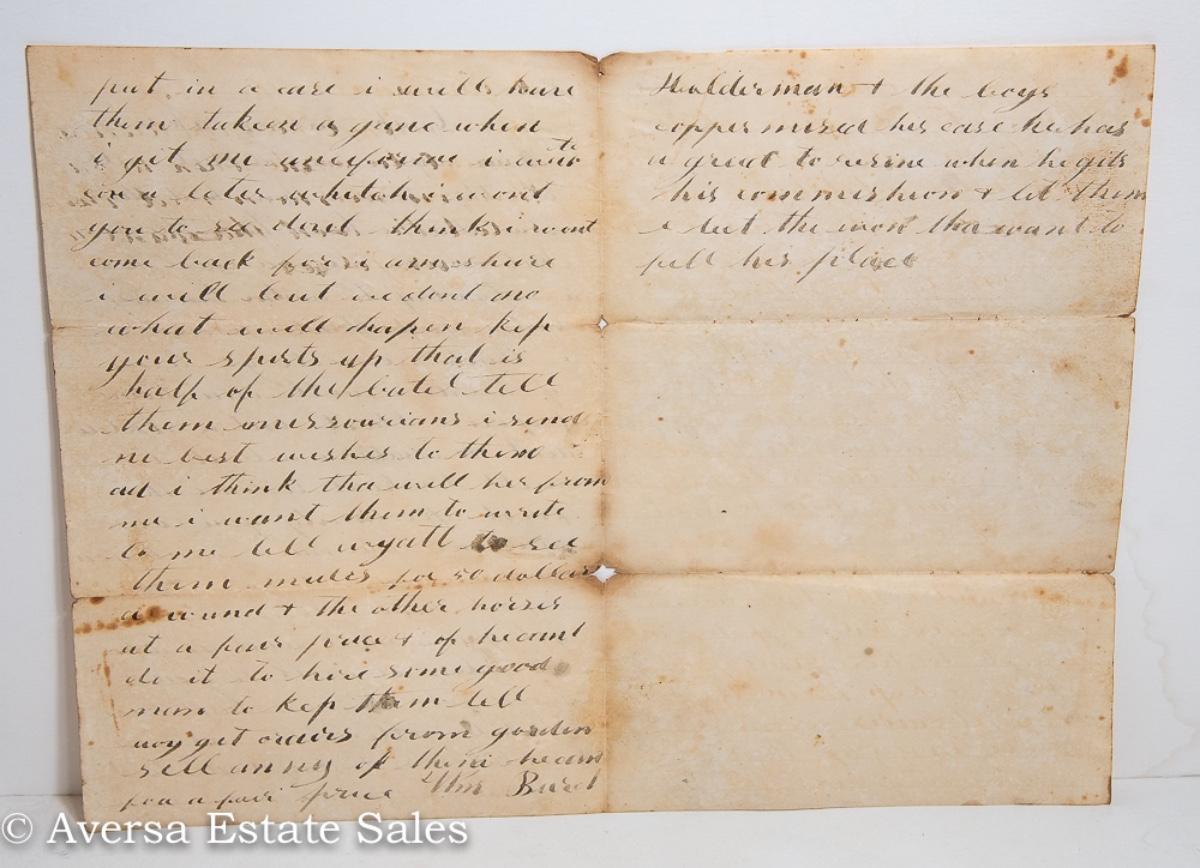 put in a case i will have
them taken a gane when
i git me uneforme i
on a later whitch i wont
you to se dont think i wont
come back for i am shure
i will but we dont no
what will hapen kep
your spirts up that is
half of the batel tell
them missourians i send
mi best wishes to them
ad i think tha will her from
me i want them to write
to me tell wyatt to see
them mules for 50 dollars
a round & the other horses
at a fair price & of he cant
do it to hire some good
man to kep them tell
git orders from gorden
sell anny of them he can
for a fair price Wm
Halderman & the boys
copper his case he has
a great to resine when he gits
his commishion & let them
the won tha want to
fill his place
© Aversa Estate Sales